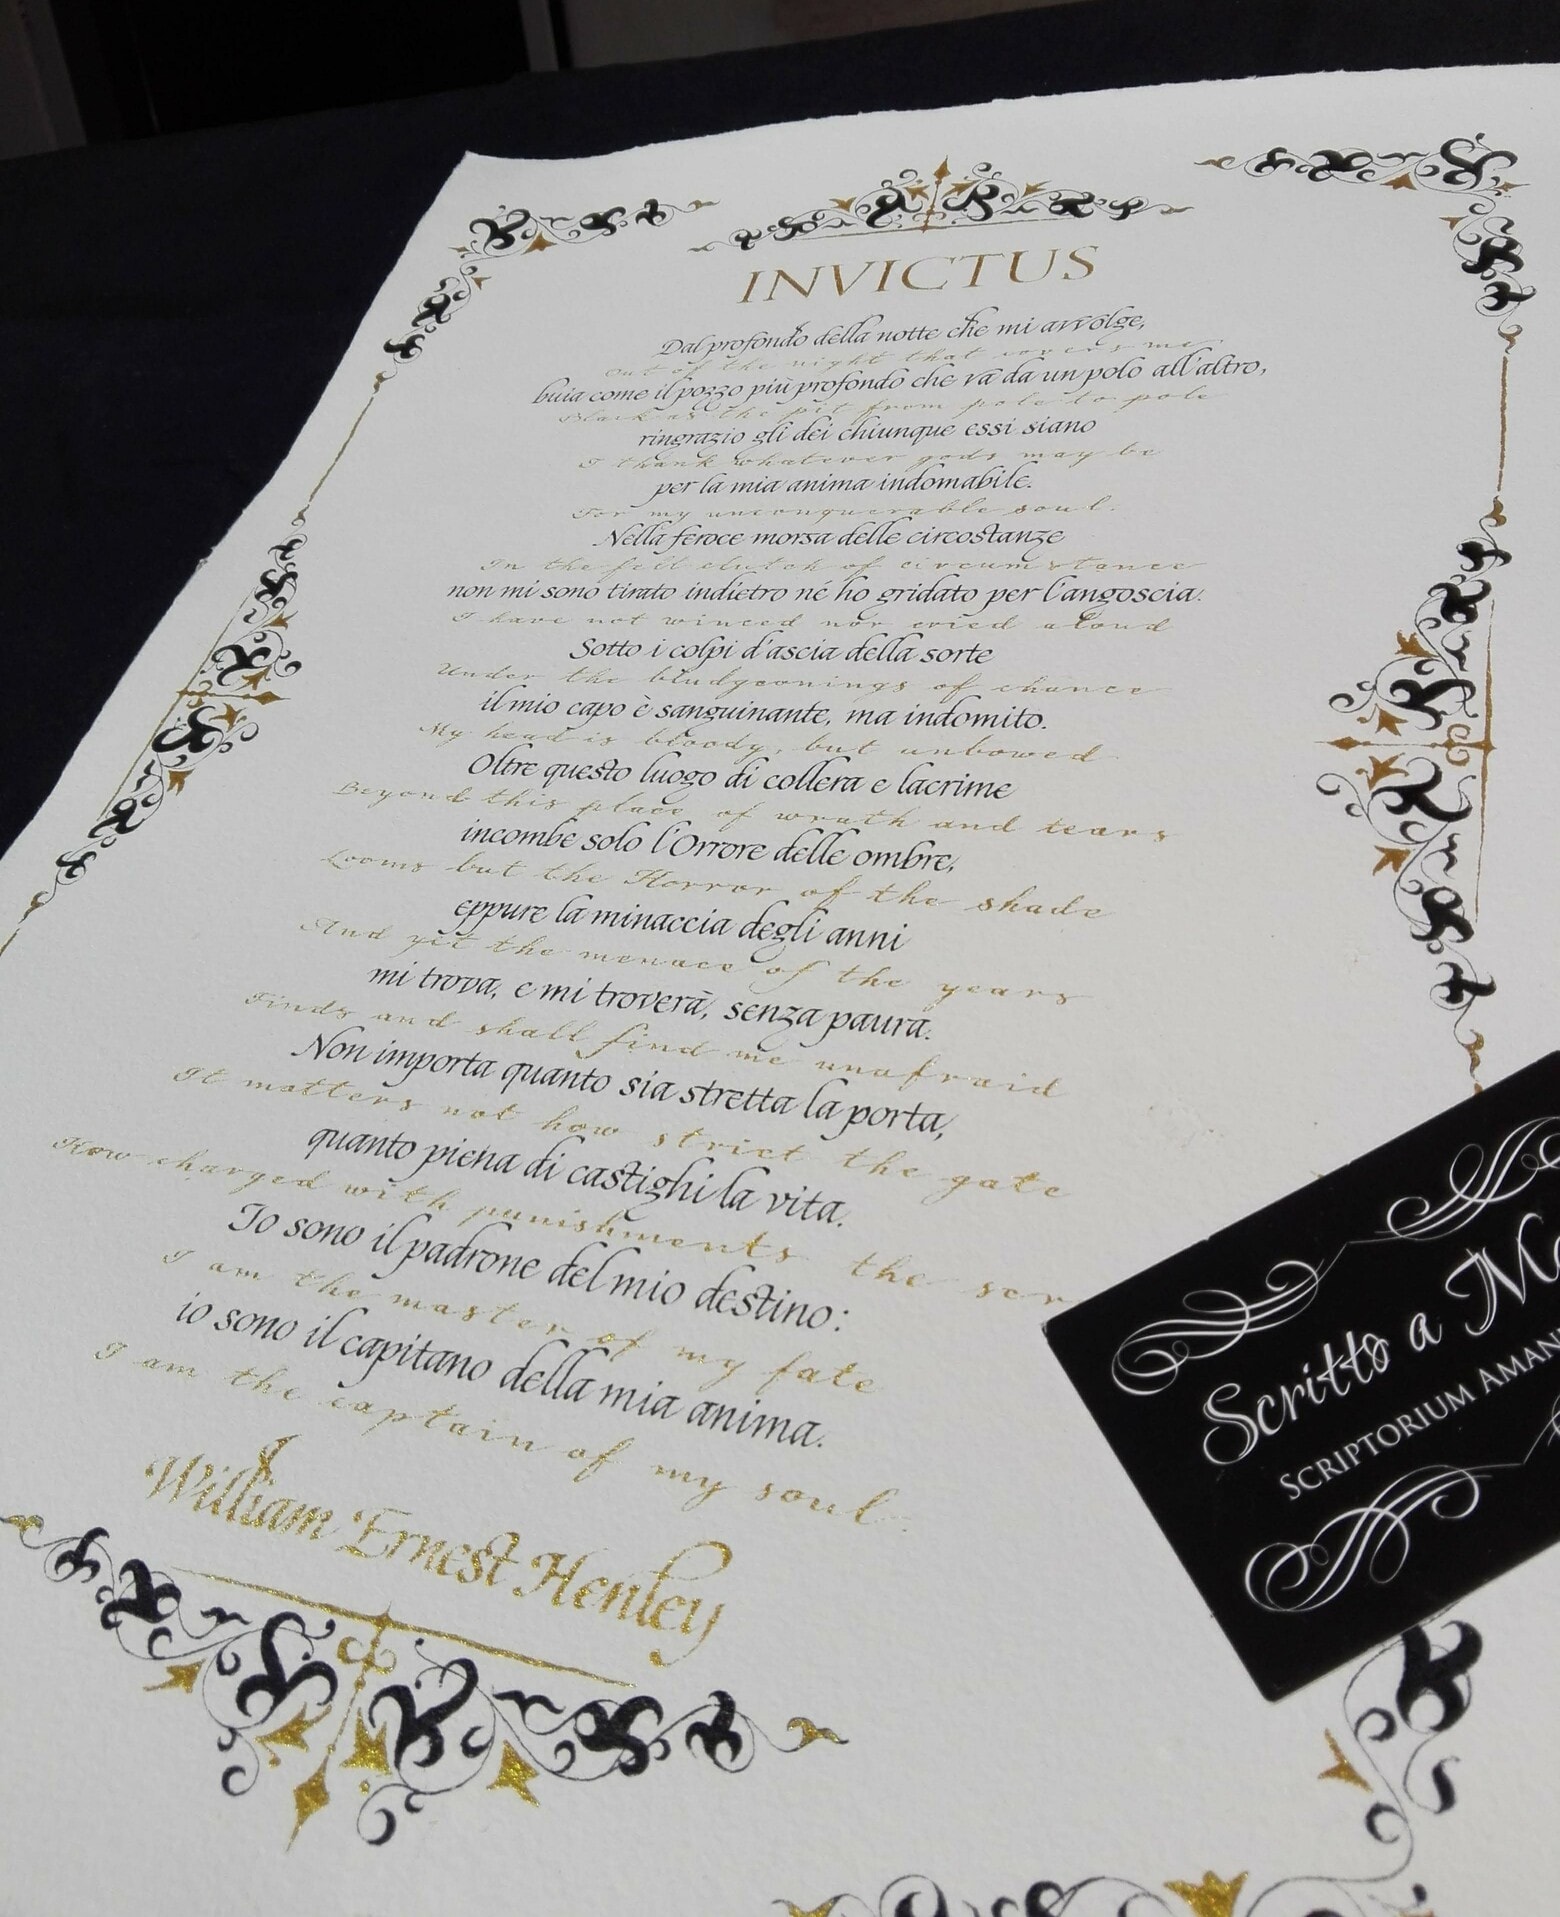 INVICTUS
Dal profondo della notte che mi avvolge,
Out of the night that covers me
buia come il pozzo più profondo che va da un polo all'altro,
Black as the pit from pole to pole
ringrazio gli dei chiunque essi siano
I thank whatever gods may be
per la mia anima indomabile.
For my unconquerable soul.
Nella feroce morsa delle circostanze
In the fell clutch of circumstance
non mi sono tirato indietro né ho gridato per l'angoscia.
I have not winced nor cried aloud
Sotto i colpi d'ascia della sorte
Under the bludgeonings of chance
il mio capo è sanguinante, ma indomito.
My head is bloody, but unbowed
Oltre questo luogo di collera e lacrime
Beyond this place of wrath and tears
incombe solo l'Orrore delle ombre,
Looms but the Horror of the shade
eppure la minaccia degli anni
And yet the menace of the years
mi trova, e mi troverà, senza paura.
Finds and shall find me unafraid
Non importa quanto sia stretta la porta,
It matters not how strict the gate
quanto piena di castighi la vita.
How charged with punishments the scr
Io sono il padrone del mio destino:
I am the master of my fate
io sono il capitano della mia anima.
I am the captain of my soul.
William Ernest Henley
Scritto a Ma
SCRIPTORIUM AMAN